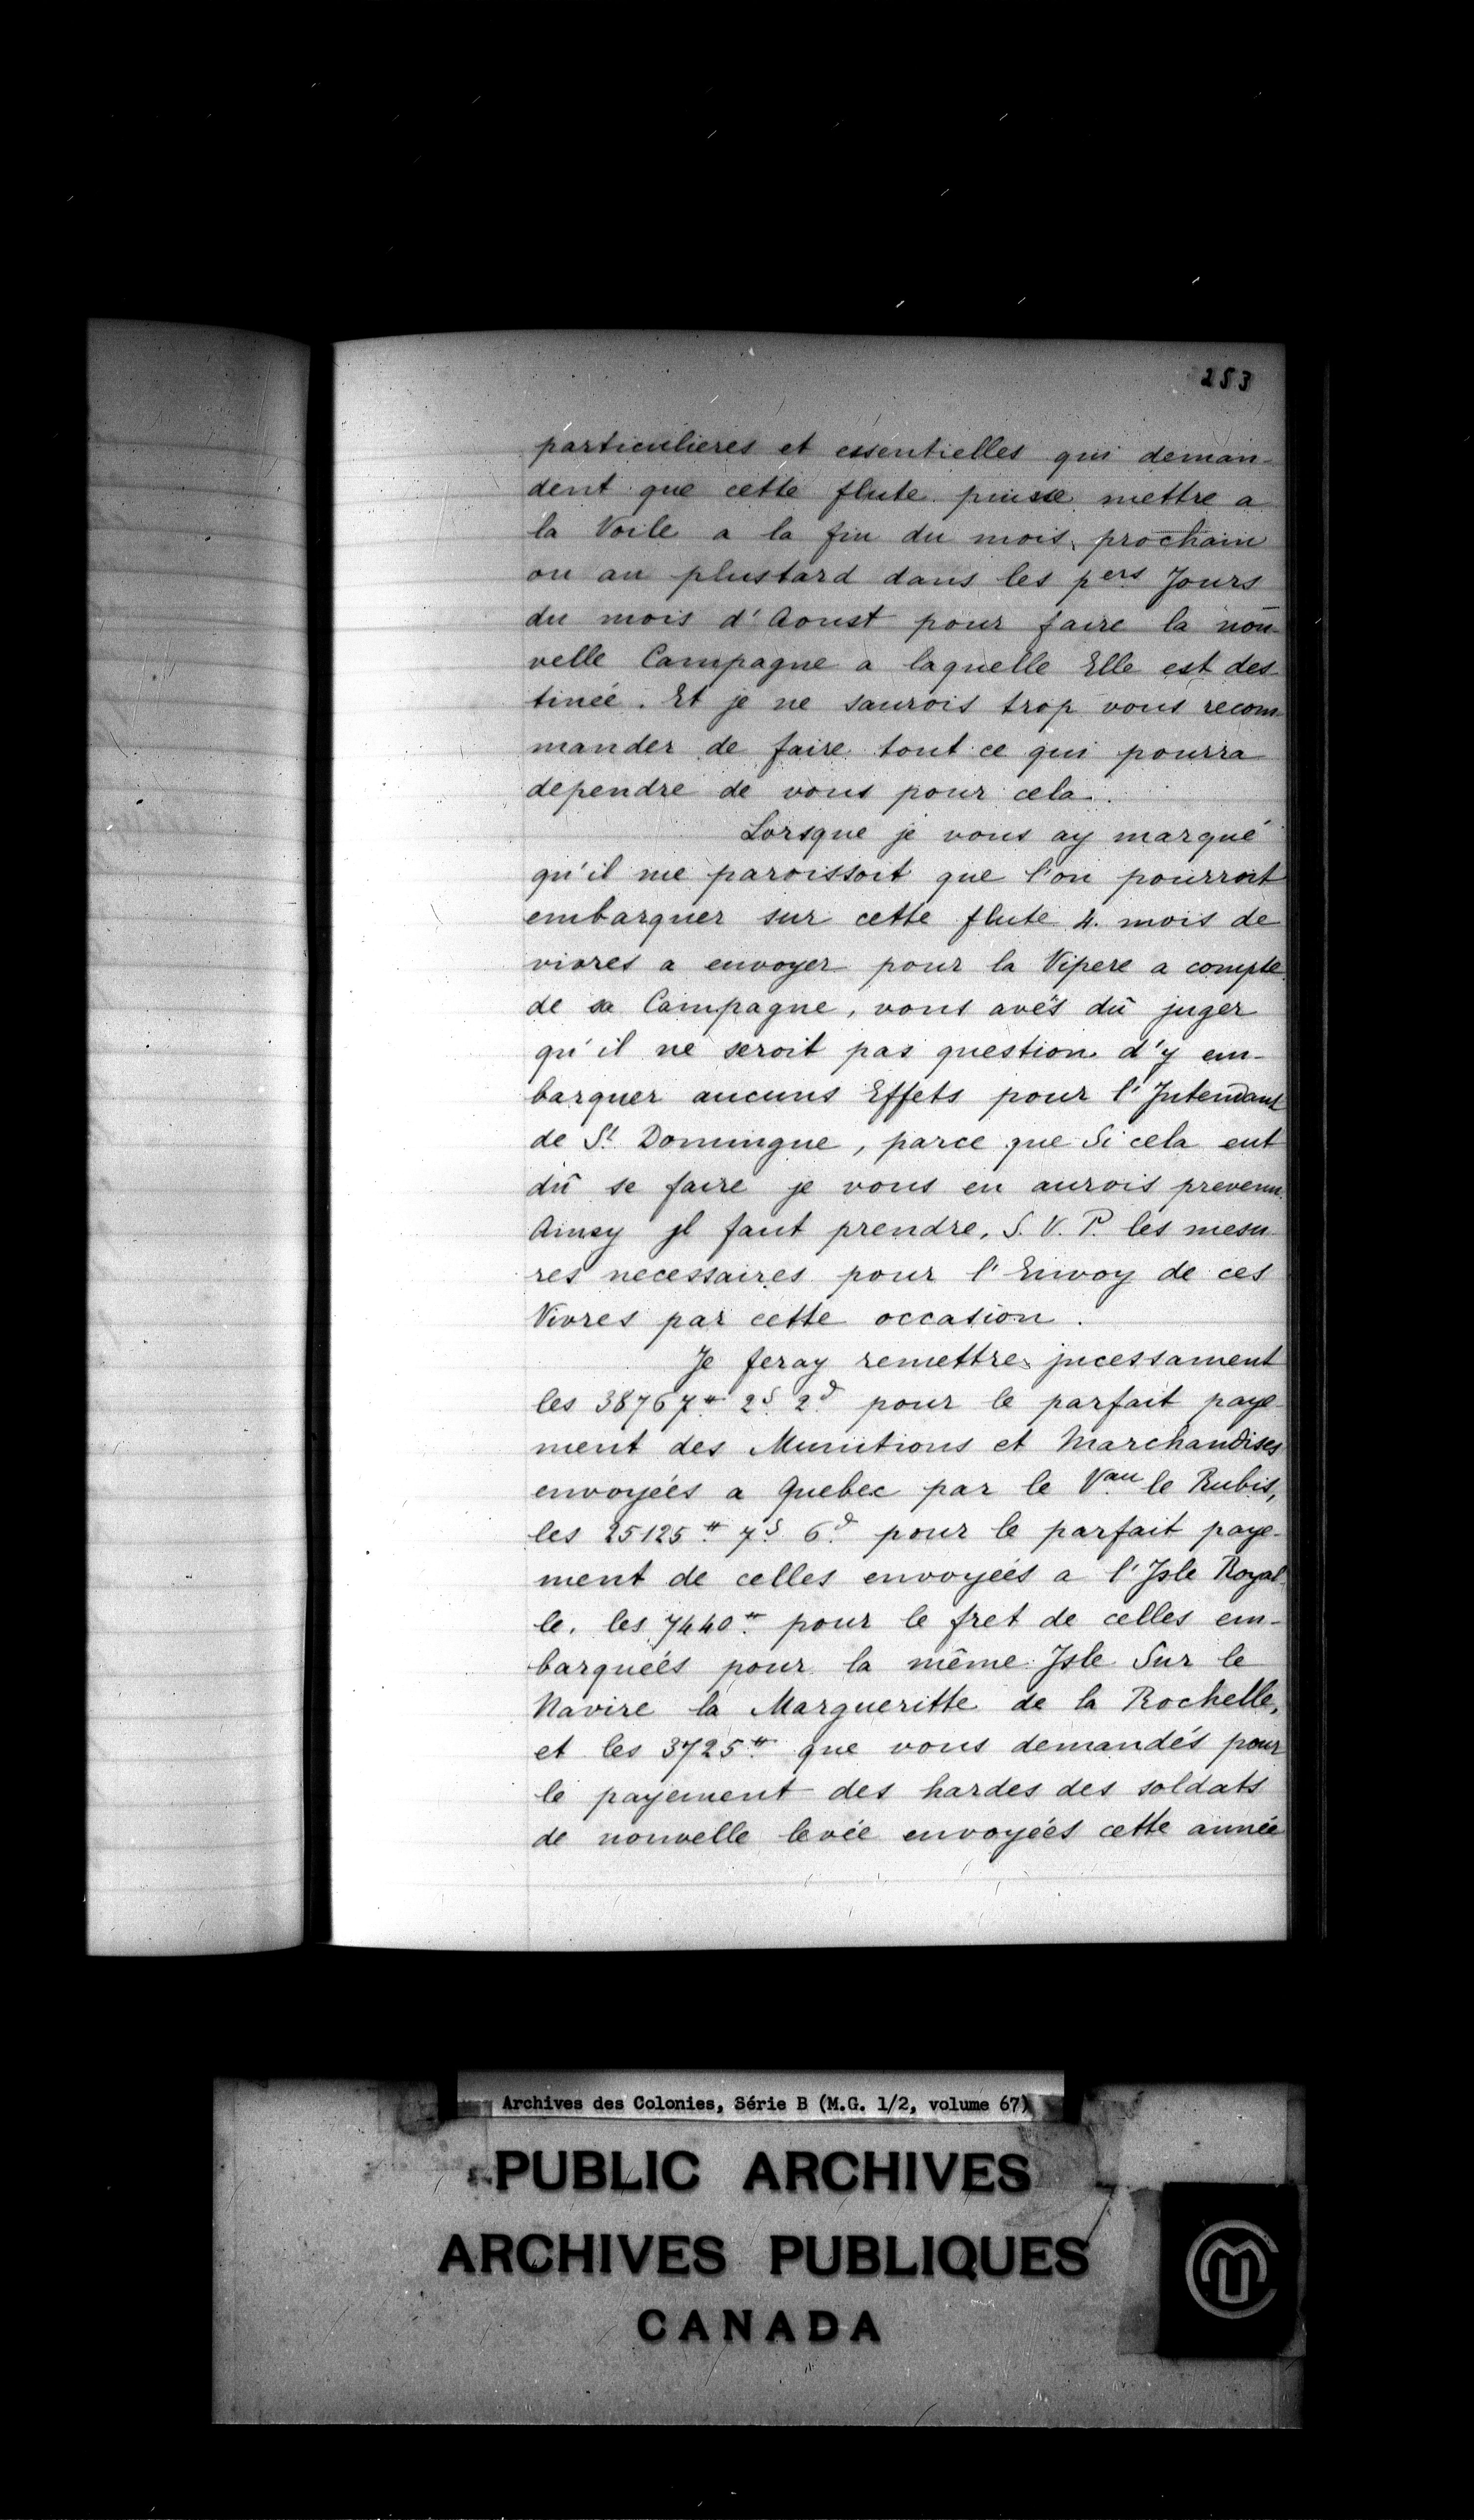 253
particulieres et essentielles qui deman-
dent que cette flute puisse mettre a
la Voile a la fin du mois prochain
ou au plustard dans les pers Jours
du mois d'Aoust pour faire la nou-
velle Campagne a laquelle Elle est des-
tineé. Et je ne saurois trop vous recom-
mander de faire tout ce qui pourra
dependre de vous pour cela.
Lorsque je vous ay marqué
qu'il me paroissoit que l'on pourroit
embarquer sur cette flute 4. mois de
vivres a envoyer pour la Vipere a compte
de sa Campagne, vous avés dû juger
qu'il ne seroit pas question d'y em-
barquer aucuns Effets pour l'Intendant
de St Domingue, parce que Si cela eut
dû se faire je vous en aurois prevenu.
Ainsy jl faut prendre, S. V. P. les mesu-
res necessaires pour l'Envoy de ces
Vivres par cette occasion.
Je feray remettre jncessament
les 38767# 2s 2d pour le parfait paye-
ment des Munitions et Marchandises
envoyeés a Quebec par le Vau le Rubis,
les 25125# 7s 6d pour le parfait paye-
ment de celles envoyeés a l'Jsle Royal-
le, les 7440# pour le fret de celles em-
barqueés pour la même Jsle Sur le
Navire la Margueritte de la Rochelle,
et les 3725# que vous demandés pour
le payement des hardes des soldats
de nouvelle levée envoyeés cette année
Archives des Colonies, Série B (M.G. 1/2, volume 67)
PUBLIC ARCHIVES
ARCHIVES PUBLIQUES
CANADA